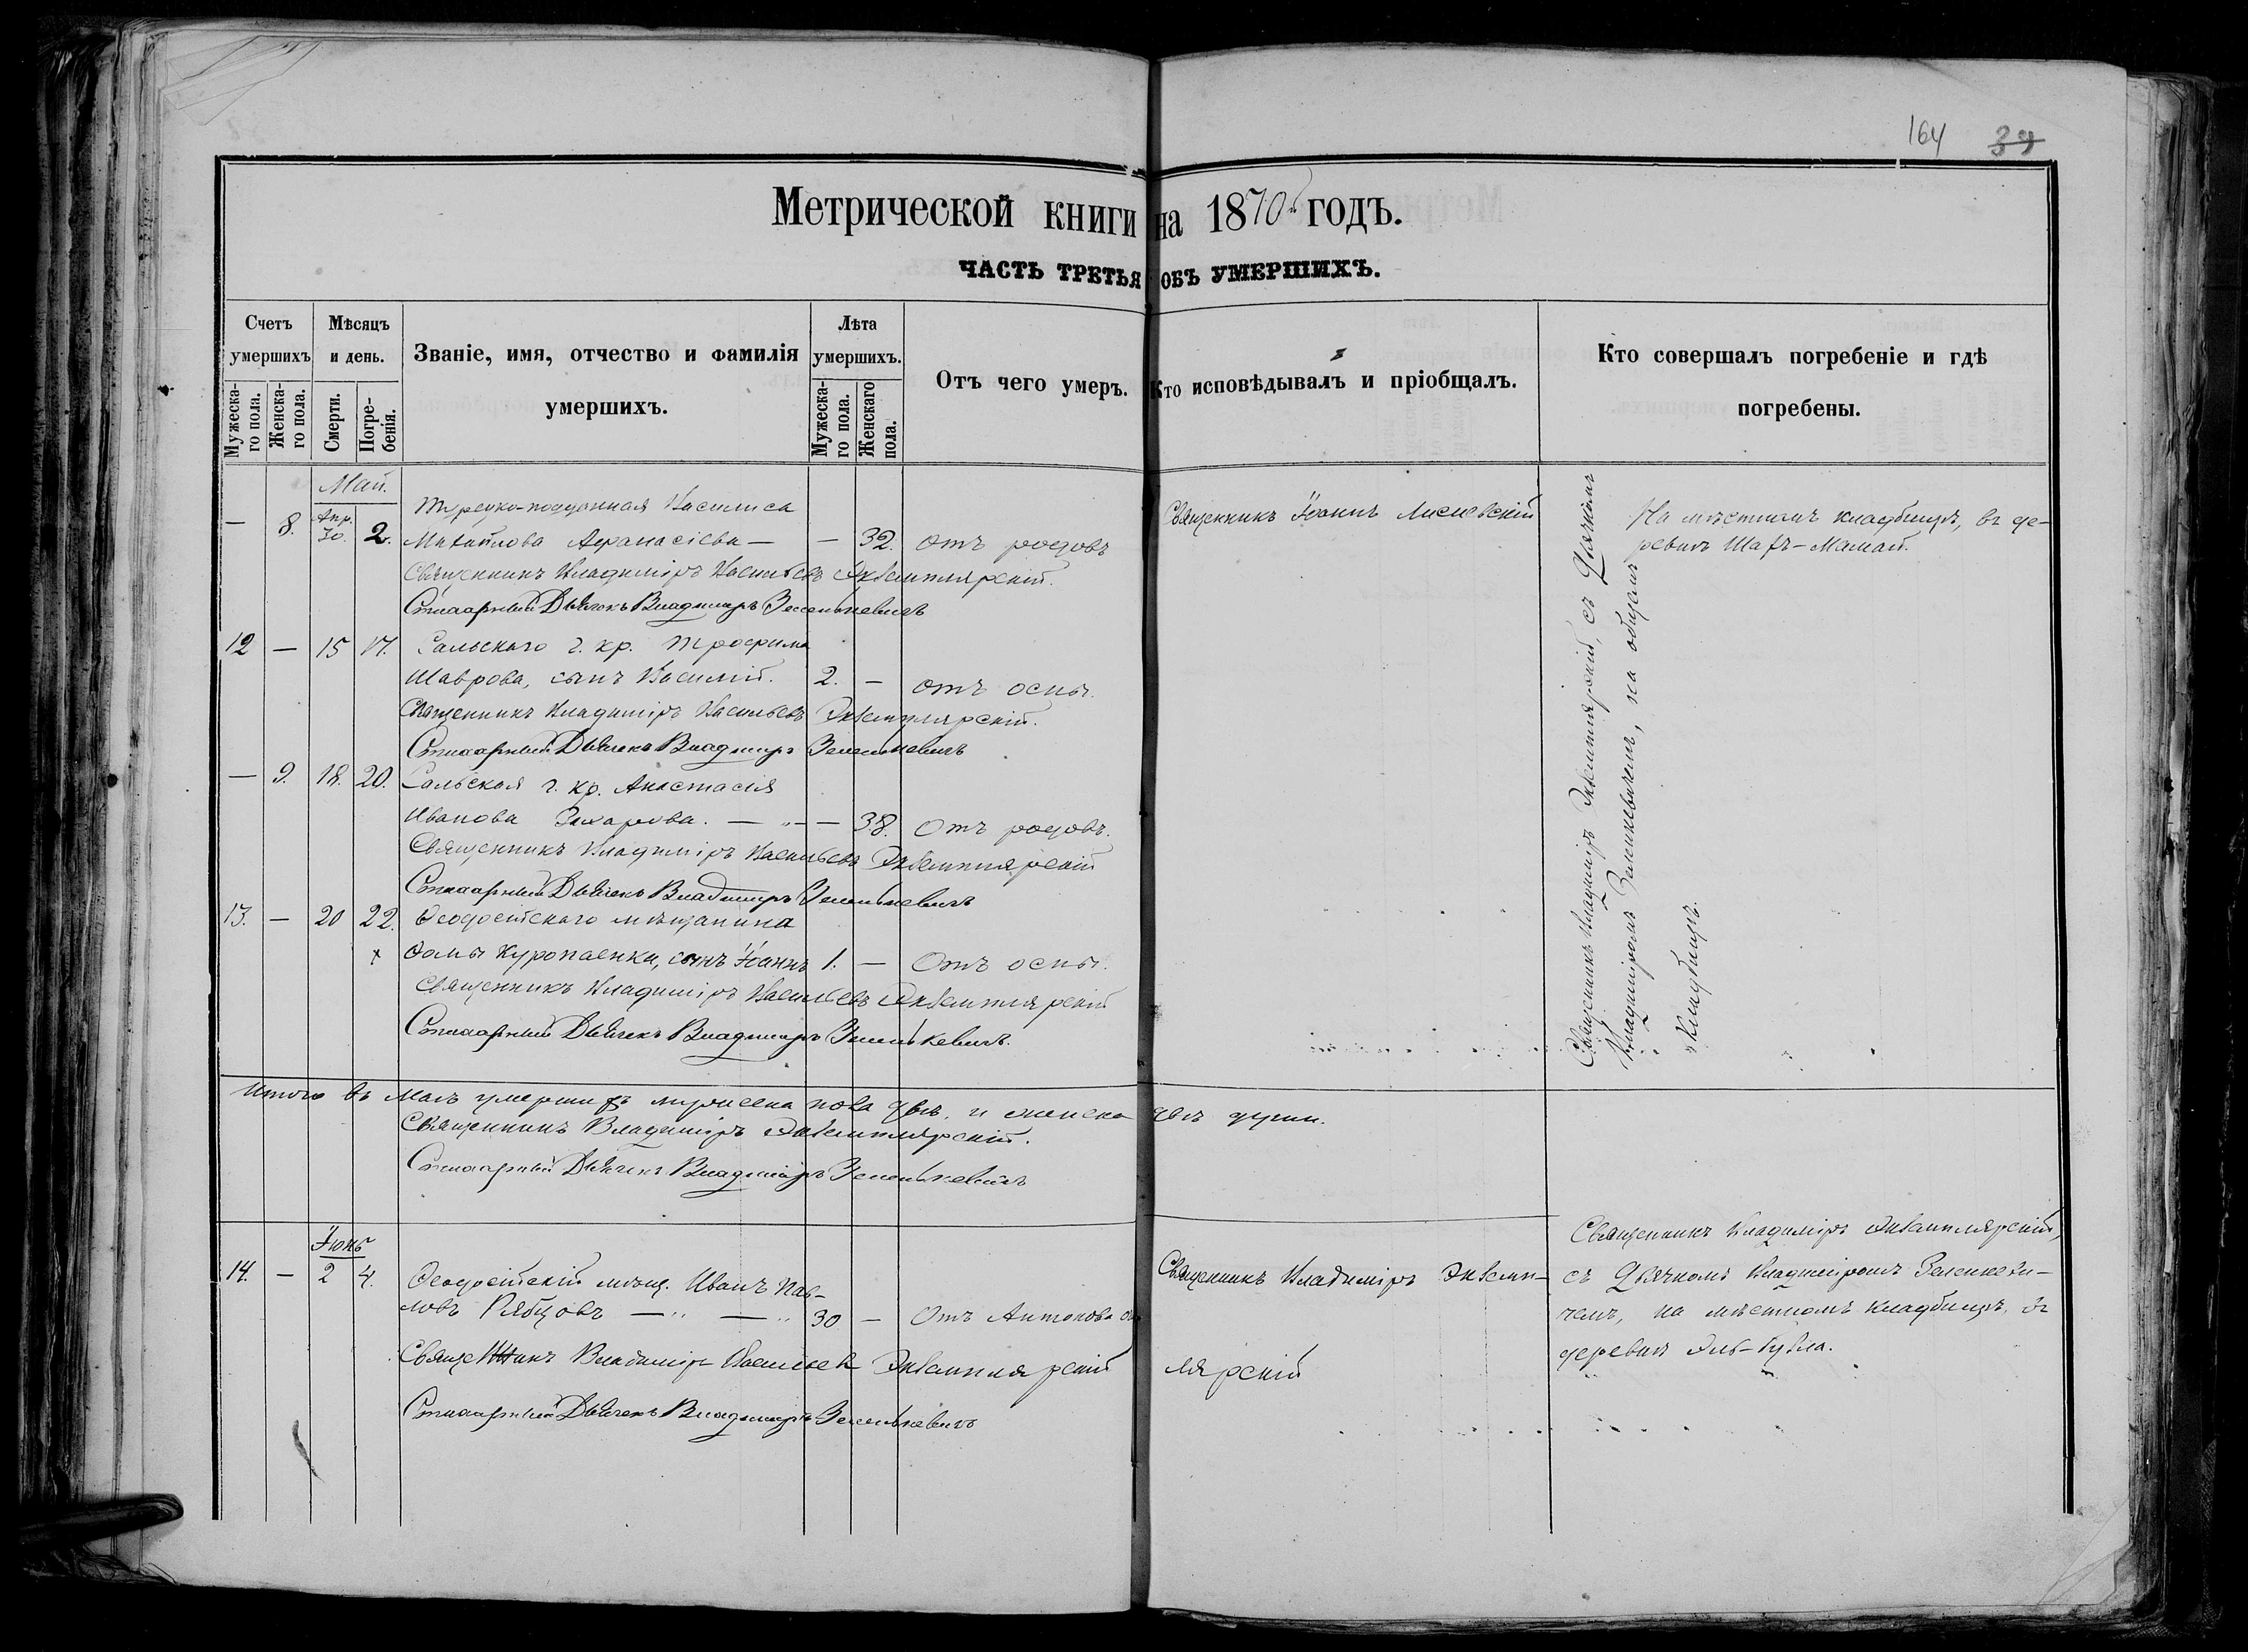 164 39
Метрической книги на 1870й годъ.
ЧАСТЬ ТРЕТЬЯ ОБЪ УМЕРШИХЪ.
Счетъ умершихъ
Мужеска-го пола.
Женска-го пола.
Мѣсяцъ и день.
Смерти.
Погре-бенія.
Званіе, имя, отчество и фамилія умершихъ.
Лѣта умершихъ.
Мужеска-го пола.
Женскаго пола.
Отъ чего умеръ.
Кто исповѣдывалъ и пріобщалъ.
Кто совершалъ погребеніе и гдѣ погребены.
Май.
— 8. Апр. 30. 2. Турецко-подданная Василиса
Михайлова Афанасіева — — 32. отъ родовъ
Священникъ Іоаннъ Лисневскій
На мѣстномъ кладбищѣ, въ де-
ревнѣ Шахъ-Мамай.
Священникъ Владиміръ Васильевъ Экземплярскій.
Стихарный Дьячекъ Владимиръ Зеленкевичъ
12 — 15 17. Сальскаго г. кр. Трофима
Шаврова, сынъ Василій. 2. — отъ оспы.
Священникъ Владиміръ Васильевъ Экземплярскій.
Стихарный Дьячекъ Владимиръ Зеленкевичъ
— 9. 18. 20. Сальская г. кр. Анастасія
Иванова Захарова. — „ — — 38. Отъ родовъ.
Священникъ Владиміръ Васильевъ Экземплярскій
Стихарный Дьячекъ Владимиръ Зеленкевичъ
13. — 20 22. Ѳеодосійскаго мѣщанина
х Ѳомы Куропаенки, сынъ Іоаннъ 1. — Отъ оспы.
Священникъ Владиміръ Васильевъ Экземплярскій
Стихарный Дьячекъ Владимиръ Зеленкевичъ.
Священникъ Владиміръ Экземплярскій, съ Дьячкомъ
Владиміромъ Зеленкевичемъ, на общемъ
кладбищѣ.
Итого въ Маѣ умершихъ мужеска пола двѣ, и женска двѣ души.
Священникъ Владиміръ Экземплярскій.
Стихарный Дьячекъ Владиміръ Зеленкевичъ
Іюнь
14. — 2 4. Ѳеодосійскій мѣщ. Иванъ Пав-
ловъ Рябцовъ — „ — „ 30 — Отъ Антонова
Священникъ Владиміръ Экземп-
лярскій
Священникъ Владиміръ Экземплярскій,
съ Дьячкомъ Владиміромъ Зеленкеви-
чемъ, на мѣстномъ кладбищѣ, въ
деревнѣ Эль-Бузла.
Священникъ Владиміръ Васильевъ Экземплярскій
Стихарный Дьячекъ Владимиръ Зеленкевичъ